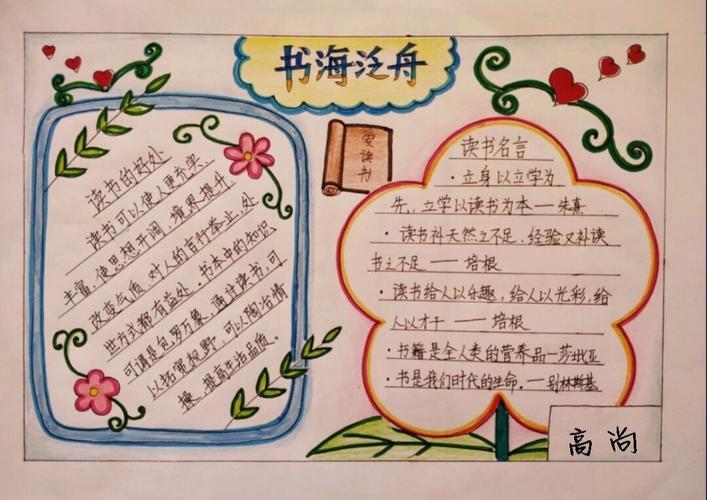 书海泛舟
读书的好处
读书可以使人更充实
丰富,使思想开阔,境界提升,
改变气质,对人的言行举止,处
世方式都有益处.书本中的知识
可谓是包罗万象,通过读书,可
以拓宽视野,可以陶冶情
操,提高生活品质。
爱读书
读书名言
·立身以立学为
先,立学以读书为本一朱熹
·读书补天然之不足,经验又补读
书之不足 — 培根
·读书给人以乐趣,给人以光彩,给
人以才干 — 培根
·书籍是全人类的营养品一莎士比亚
·书是我们时代的生命.一别林斯基
高尚